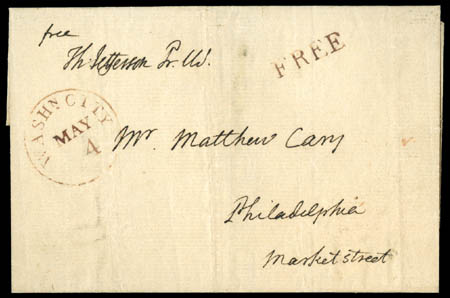 free
Th Jefferson Pr. US.
FREE
WASHN CITY
MAY
4
Mr. Matthew Cary
Philadelphia
Market street